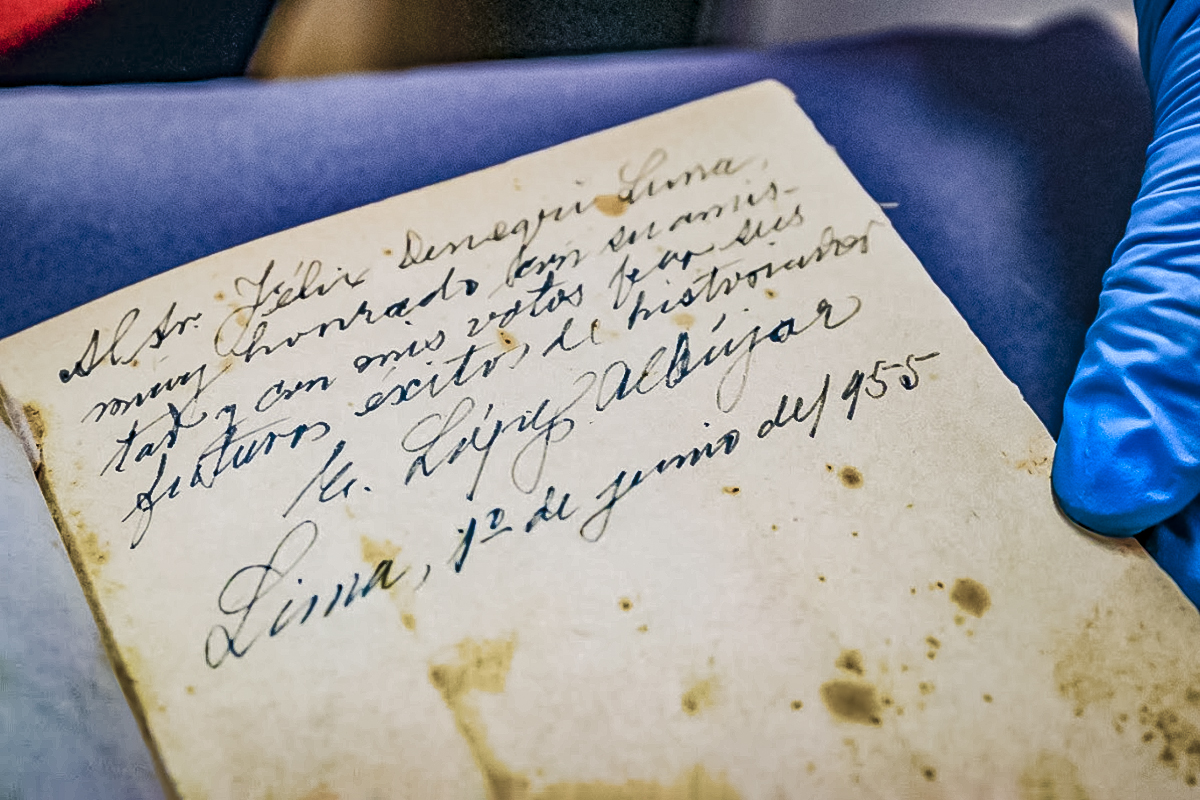 Al Sr. Félix Denegri Luna,
muy honrado con su amis-
tad y con mis votos por sus
futuros éxitos, de historiador
E. López Albújar
Lima, 1º de junio del 955